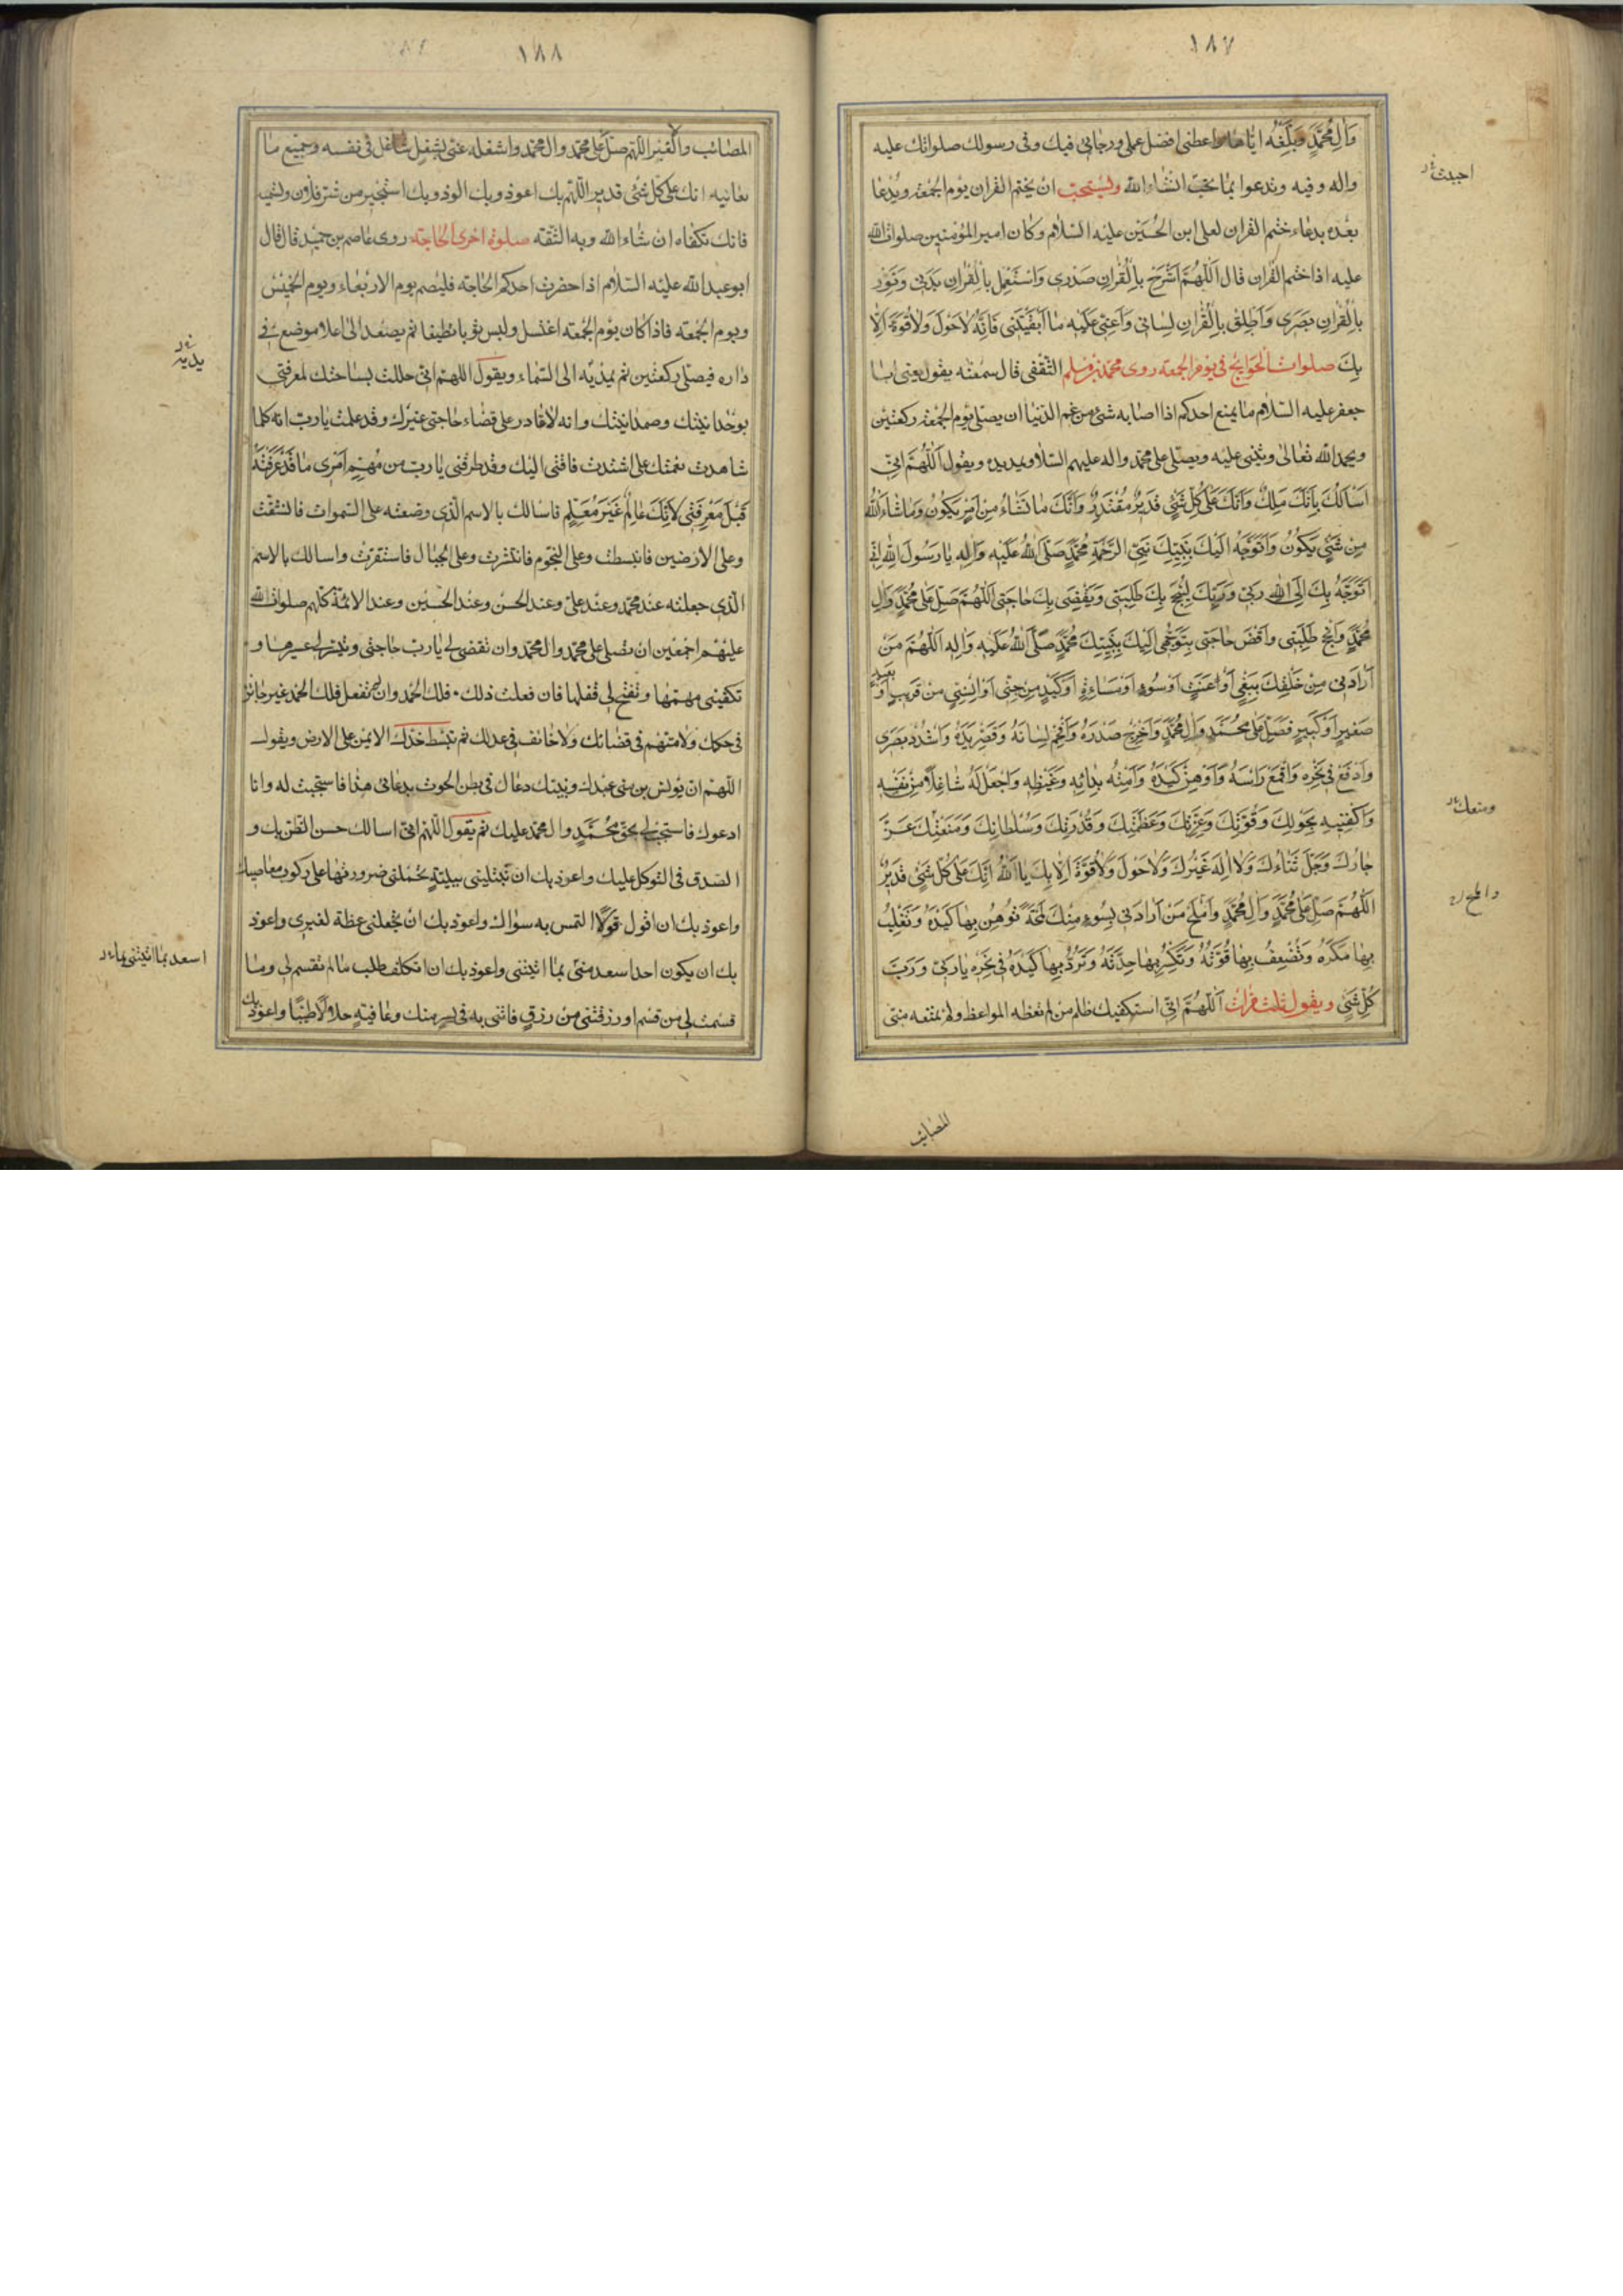 ١٨٧
وَآلِ مُحَمَّدٍ وَبَلِّغْهُ ايّاها واعطنى افضل عملى ورجائى فيك وفى رسولك صلواتك عليه
واله وفيه وتدعوا بما تحبّ انشاء الله ويستحبّ ان يختم القران يوم الجمعة ويدعا
بعده بدعاء ختم القران لعلى ابن الحسين عليه السّلام وكان امير المؤمنين صلوات الله
عليه اذا ختم القران قال اَللّهُمَّ اشْرَحْ بِالْقُرانِ صَدْرى وَاسْتَعْمِلْ بِالْقُرانِ بَدَنى وَنَوِّرْ
بِالْقُرانِ بَصَرى وَاَطْلِقْ بِالْقُرانِ لِسانى وَاَعِنّى عَلَيْهِ ما اَبْقَيْتَنى فَاِنَّهُ لاحَوْلَ وَلاقُوَّةَ اِلّا
بِكَ صلوات الحوايج فى يوم الجمعة روى محمّد بن مسلم الثّقفى قال سمعته يقول يعنى ابا
جعفر عليه السّلام ما يمنع احدكم اذا اصابه شئ من غم الدّنيا ان يصلّى يوم الجمعة ركعتين
ويحمد الله تعالى ويثنى عليه ويصلّى على محمّد واله عليهم السّلام ويمد يده ويقول اَللّهُمَّ اِنّى
اَسْاَلُكَ بِاَنَّكَ مَلِكٌ وَاَنَّكَ عَلى كُلِّ شَئٍ قَديرٌ مُقْتَدِرٌ وَاَنَّكَ ما تَشاءُ مِنْ اَمْرٍ يَكُونُ وَما شاءَ اللهُ
مِنْ شَئٍ يَكُونُ وَاَتَوَجَّهُ اِلَيْكَ بِنَبِيِّكَ نَبِىِّ الرَّحْمَةِ مُحَمَّدٍ صَلَّى اللهُ عَلَيْهِ وَالِهِ يا رَسُولَ اللهِ اِنّى
اَتَوَجَّهُ بِكَ اِلَى اللهِ رَبّى وَرَبِّكَ لِيُنْجِحَ بِكَ طَلِبَتى وَيَقْضِىَ بِكَ حاجَتى اَللّهُمَّ صَلِّ عَلى مُحَمَّدٍ وَالِ
مُحَمَّدٍ وَاَنْجِحْ طَلِبَتى وَاقْضِ حاجَتى بِتَوَجُّهى اِلَيْكَ بِنَبِيِّكَ مُحَمَّدٍ صَلَّى اللهُ عَلَيْهِ وَالِهِ اَللّهُمَّ مَنْ
اَرادَنى مِنْ خَلْقِكَ بِبَغْىٍ اَوْ عَنَتٍ اَوْ سُوءٍ اَوْ مَساءَةٍ اَوْ كَيْدٍ مِنْ جِنّىٍ اَوْ اِنْسِىٍّ مِنْ قَريبٍ اَوْ بَعيدٍ
صَغيرٍ اَوْ كَبيرٍ فَصَلِّ عَلى مُحَمَّدٍ وَالِ مُحَمَّدٍ وَاَحْرِجْ صَدْرَهُ وَاَفْحِمْ لِسانَهُ وَقَصِّرْ يَدَهُ وَاسْدُدْ بَصَرَهُ
وَادْفَعْ فى نَحْرِهِ وَاقْمَعْ رَاْسَهُ وَاَوْهِنْ كَيْدَهُ وَاَمِتْهُ بِدائِهِ وَغَيْظِهِ وَاجْعَلْ لَهُ شاغِلاً مِنْ نَفْسِهِ
وَاكْفِنيهِ بِحَوْلِكَ وَقُوَّتِكَ وَعِزَّتِكَ وَعَظَمَتِكَ وَقُدْرَتِكَ وَسُلْطانِكَ وَمَنَعَتِكَ عَزَّ
جارُكَ وَجَلَّ ثَناءُكَ وَلا اِلهَ غَيْرُكَ وَلا حَوْلَ وَلا قُوَّةَ اِلّا بِكَ يا اَللهُ اِنَّكَ عَلى كُلِّ شَئٍ قَديرٌ
اَللّهُمَّ صَلِّ عَلى مُحَمَّدٍ وَالِ مُحَمَّدٍ وَاَمْلِحْ مَنْ اَرادَنى بِسُوءٍ مِنْكَ لَمْحَةً تُوهِنُ بِها كَيْدَهُ وَتَغْلِبُ
بِها مَكْرَهُ وَتُضْعِفُ بِها قُوَّتَهُ وَتَكْسِرُ بِها حِدَّتَهُ وَتَرُدُّ بِها كَيْدَهُ فى نَحْرِهِ يا رَبّى وَرَبَّ
كُلِّ شَئٍ ويقول ثلث مرّات اَللّهُمَّ اِنّى استكفيك ظلم من لم تعظه المواعظ ولم تمنعه منّى
ومنعك
والمح
المصايب
١٨٨
المصائب والْغِيَر اللّهم صلّ على محمّد وال محمّد واشغله عنّى بشغل شاغل فى نفسه وجميع ما
يعانيه انك على كلّ شئ قدير اللّهم بك اعوذ وبك الوذ وبك استجير من شر فلان وتسمّيه
فانك تكفاه ان شاء الله وبه الثقة صلوة اخرى للحاجة روى عاصم بن حميد قال قال
ابو عبد الله عليه السّلام اذا حضرت احدكم الحاجة فليصم يوم الاربعاء ويوم الخميس
ويوم الجمعة فاذا كان يوم الجمعة اغتسل ولبس ثوبا نظيفا ثم يصعد الى اعلا موضع فى
داره فيصلّى ركعتين ثم يمدّ يديه الى السّماء ويقول اللهم انّى حللت بساحتك لمعرفتى
بوحدانيتك وصمدانيتك وانه لا قادر على قضاء حاجتى غيرك وقد علمت يا ربّ انه كلما
شاهدت نعمتك على اشتدت فاقتى اليك وقد طرقنى يا ربّ من مُهِمِّ اَمْرى ما قَدْ عَرَفْتَهُ
قَبْلَ مَعْرِفَتى لِاَنَّكَ عالِمٌ غَيْرُ مُعَلَّمٍ فاسالك بالاسم الّذى وضعته على السّموات فانشقت
وعلى الارضين فانبسطت وعلى النّجوم فانتثرت وعلى الجبال فاستقرت واسالك بالاسم
الّذى جعلته عند محمد وعند على وعند الحسن وعند الحسين وعند الائمّة كلّهم صلوات الله
عليهم اجمعين ان تصلى على محمّد وال محمّد وان تقضى لى يا ربّ حاجتى وتيسّر لى عسيرها و
تكفينى مهمّها وتفتح لى قفلها فان فعلت ذلك فلك الحمد وان لم تفعل فلك الحمد غير جائز
فى حكمك ولا متّهم فى قضائك ولا خائف فى عدلك ثم تبسط خدّك الايمن على الارض ويقول
اللّهم ان يونس بن متى عبدك ونبيّك دعاك فى بطن الحوت بدعائى هذا فاستجبت له وانا
ادعوك فاستجب لى بحقّ مُحَمَّدٍ وال محمّد عليك ثم يقول اللّهم انّى اسالك حسن الظنّ بك و
الصّدق فى التوكل عليك واعوذ بك ان تبتلينى ببليّةٍ تحملنى ضرورتها على ركوب معاصيك
واعوذ بك ان اقول قولاً التمس به سواك واعوذ بك ان تجعلنى عظة لغيرى واعوذ
بك ان يكون احد اسعد منّى بما اتيتنى واعوذ بك ان اتكلف طلب ما لم تقسم لى وما
قسمت لى من قسم او رزقتنى من رزق فاتنى به فى يسر منك وعافية حلالاً طيّبًا واعوذ بك
يديه
اسعد بما اتيتنى